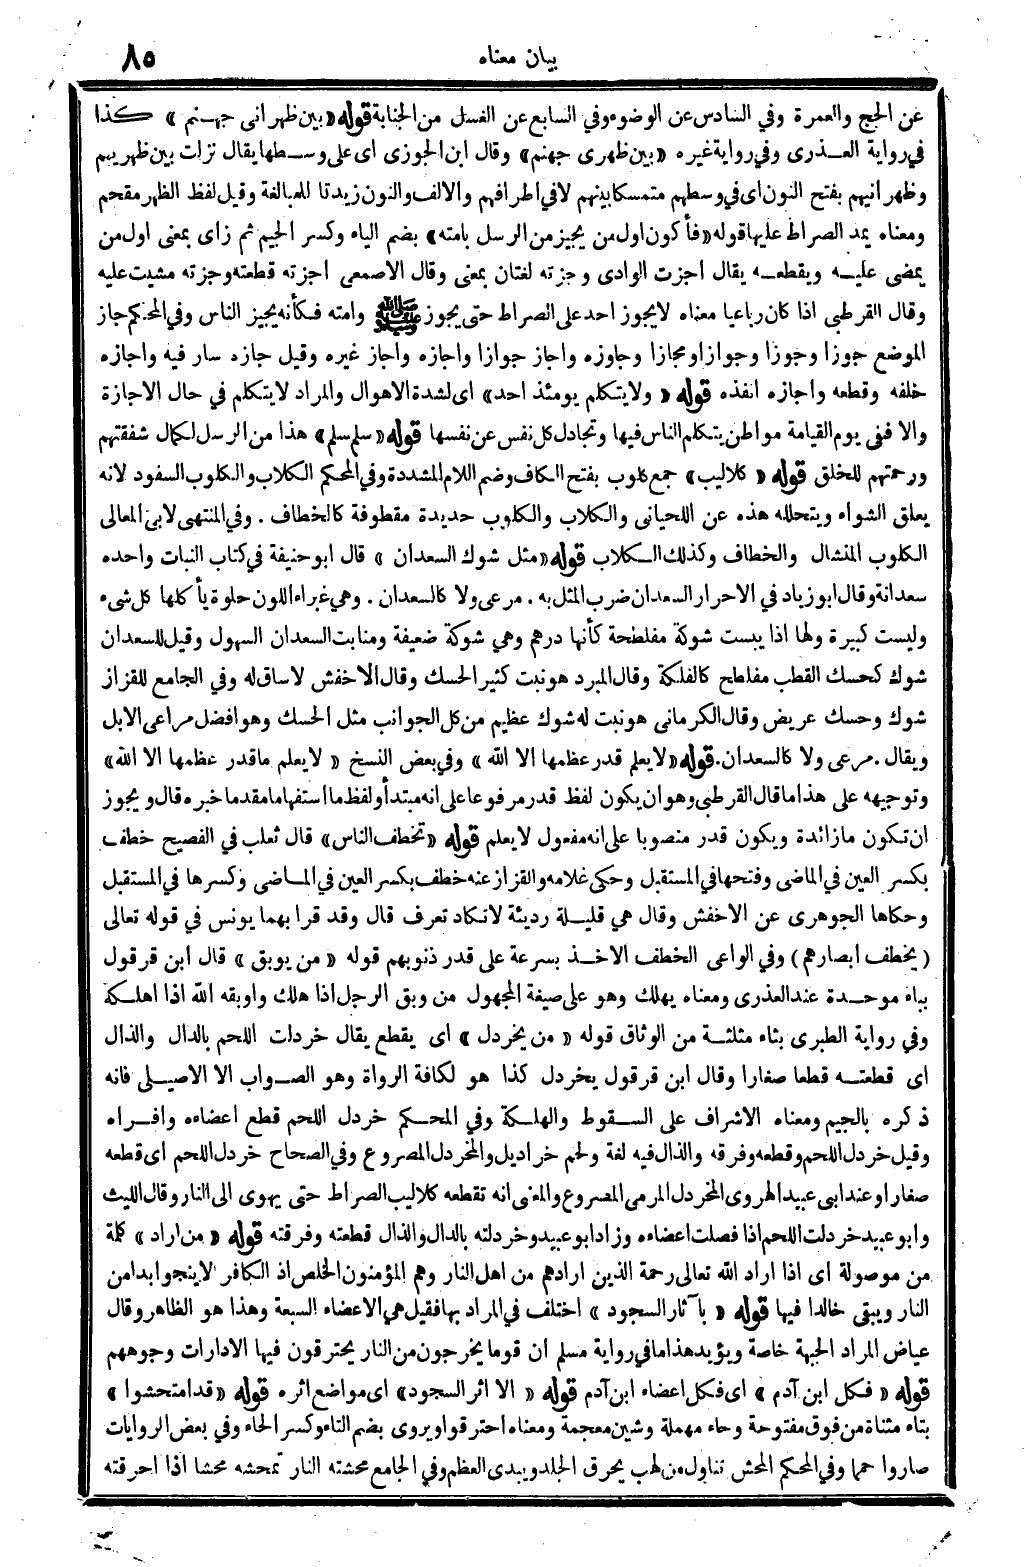 بيان معناه ٨٥
عن الحج والعمرة وفي السادس عن الوضوء وفي السابع عن الغسل من الجنابة قوله «بين ظهرانى جهنم» كذا
في رواية العذرى وفي رواية غيره «بين ظهرى جهنم» وقال ابن الجوزى اى على وسطها يقال نزلت بين ظهريهم
وظهرانيهم بفتح النون اى في وسطهم متمسكا بينهم لا في اطرافهم والالف والنون زيدتا للمبالغة وقيل لفظ الظهر مقحم
ومعناه يمد الصراط عليها قوله «فأكون اول من يجيز من الرسل بامته» بضم الياء وكسر الجيم ثم زاى بمعنى اول من
يمضى عليه ويقطعه يقال اجزت الوادى وجزته لغتان بمعنى وقال الاصمعى اجزته قطعته وجزته مشيت عليه
وقال القرطبى اذا كان رباعيا معناه لا يجوز احد على الصراط حتى يجوز ﷺ وامته فكأنه يجيز الناس وفي المحكم جاز
الموضع جوزا وجوزا وجوازا ومجازا وجاوزه واجاز جوازا واجازه واجاز غيره وقيل جازه سار فيه واجازه
خلفه وقطعه واجازه انفذه قوله «ولا يتكلم يومئذ احد» اى لشدة الاهوال والمراد لا يتكلم في حال الاجازة
والا ففى يوم القيامة مواطن يتكلم الناس فيها وتجادل كل نفس عن نفسها قوله «سلم سلم» هذا من الرسل لكمال شفقتهم
ورحمتهم للخلق قوله «كلاليب» جمع كلوب بفتح الكاف وضم اللام المشددة وفي المحكم الكلاب والكلوب السفود لانه
يعلق الشواء ويتحلله هذه عن اللحيانى والكلاب والكلوب حديدة مقطوفة كالخطاف . وفي المنتهى لابى المعالى
الكلوب المنشال والخطاف وكذلك الكلاب قوله «مثل شوك السعدان» قال ابو حنيفة في كتاب النبات واحده
سعدانة وقال ابو زياد في الاحرار السعدان ضرب المثل به . مرعى ولا كالسعدان . وهي غبراء اللون حلوة يأكلها كل شىء
وليست كبيرة ولها اذا يبست شوكة مفلطحة كأنها درهم وهي شوكة ضعيفة ومنابت السعدان السهول وقيل للسعدان
شوك كحسك القطب مفلطح كالفلكة وقال المبرد هو نبت كثير الحسك وقال الاخفش لا ساق له وفي الجامع للقزاز
شوك وحسك عريض وقال الكرمانى هو نبت له شوك عظيم من كل الجوانب مثل الحسك وهو افضل مراعى الابل
ويقال . مرعى ولا كالسعدان . قوله «لا يعلم قدر عظمها الا الله» وفي بعض النسخ «لا يعلم ما قدر عظمها الا الله»
وتوجيهه على هذا ما قال القرطبى وهو ان يكون لفظ قدر مرفوعا على انه مبتدأ ولفظ ما استفهاما مقدما خبره قال ويجوز
ان تكون ما زائدة ويكون قدر منصوبا على انه مفعول لا يعلم قوله «تخطف الناس» قال ثعلب في الفصيح خطف
بكسر العين في الماضى وفتحها في المستقبل وحكى غلامه والقزاز عنه خطف بكسر العين في الماضى وكسرها في المستقبل
وحكاها الجوهرى عن الاخفش وقال هي قليلة رديئة لا تكاد تعرف قال وقد قرا بهما يونس في قوله تعالى
( يخطف ابصارهم ) وفي الواعى الخطف الاخذ بسرعة على قدر ذنوبهم قوله «من يوبق» قال ابن قرقول
بباء موحدة عند العذرى ومعناه يهلك وهو على صيغة المجهول من وبق الرجل اذا هلك واوبقه الله اذا اهلكه
وفي رواية الطبرى بثاء مثلثة من الوثاق قوله «من يخردل» اى يقطع يقال خردلت اللحم بالدال والذال
اى قطعته قطعا صغارا وقال ابن قرقول يخردل كذا هو لكافة الرواة وهو الصواب الا الاصيلى فانه
ذكره بالجيم ومعناه الاشراف على السقوط والهلكة وفي المحكم خردل اللحم قطع اعضاءه وافراه
وقيل خردل اللحم وقطعه وفرقه والذال فيه لغة ولحم خراديل والمخردل المصروع وفي الصحاح خردل اللحم اى قطعه
صغارا وعند ابى عبيد الهروى المخردل المرمى المصروع والمعنى انه تقطعه كلاليب الصراط حتى يهوى الى النار وقال الليث
وابو عبيد خردلت اللحم اذا فصلت اعضاءه وزاد ابو عبيد وخردلته بالدال والذال قطعته وفرقته قوله «من اراد» كلمة
من موصولة اى اذا اراد الله تعالى رحمة الذين ارادهم من اهل النار وهم المؤمنون الخلص اذ الكافر لا ينجو ابدا من
النار ويبقى خالدا فيها قوله «بآثار السجود» اختلف في المراد بها فقيل هي الاعضاء السبعة وهذا هو الظاهر وقال
عياض المراد الجبهة خاصة ويؤيد هذا ما في رواية مسلم ان قوما يخرجون من النار يحترقون فيها الا دارات وجوههم
قوله «فكل ابن آدم» اى فكل اعضاء ابن آدم قوله «الا اثر السجود» اى مواضع اثره قوله «قد امتحشوا»
بتاء مثناة من فوق مفتوحة وحاء مهملة وشين معجمة ومعناه احترقوا ويروى بضم التاء وكسر الحاء وفي بعض الروايات
صاروا حمما وفي المحكم المحش تناول من لهب يحرق الجلد ويبدى العظم وفي الجامع محشته النار تمحشه محشا اذا احرقته